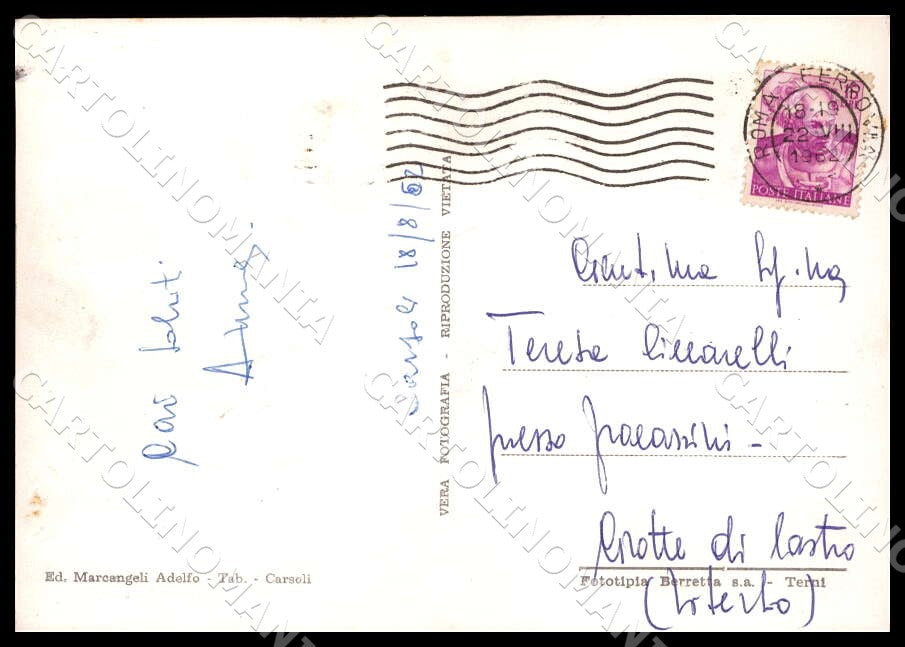 CARTOLINOMANIA
ROMA FERROVIA
18-19
22 VIII
1962
POSTE ITALIANE
Carsoli 18/8/62
Cari saluti
VERA FOTOGRAFIA - RIPRODUZIONE VIETATA
Gent.ma Sig.na
Teresa Ciccarelli
presso
Grotte di Castro
(Viterbo)
Ed. Marcangeli Adelfo - Tab. - Carsoli
Fototipia Berretta s.a. - Terni